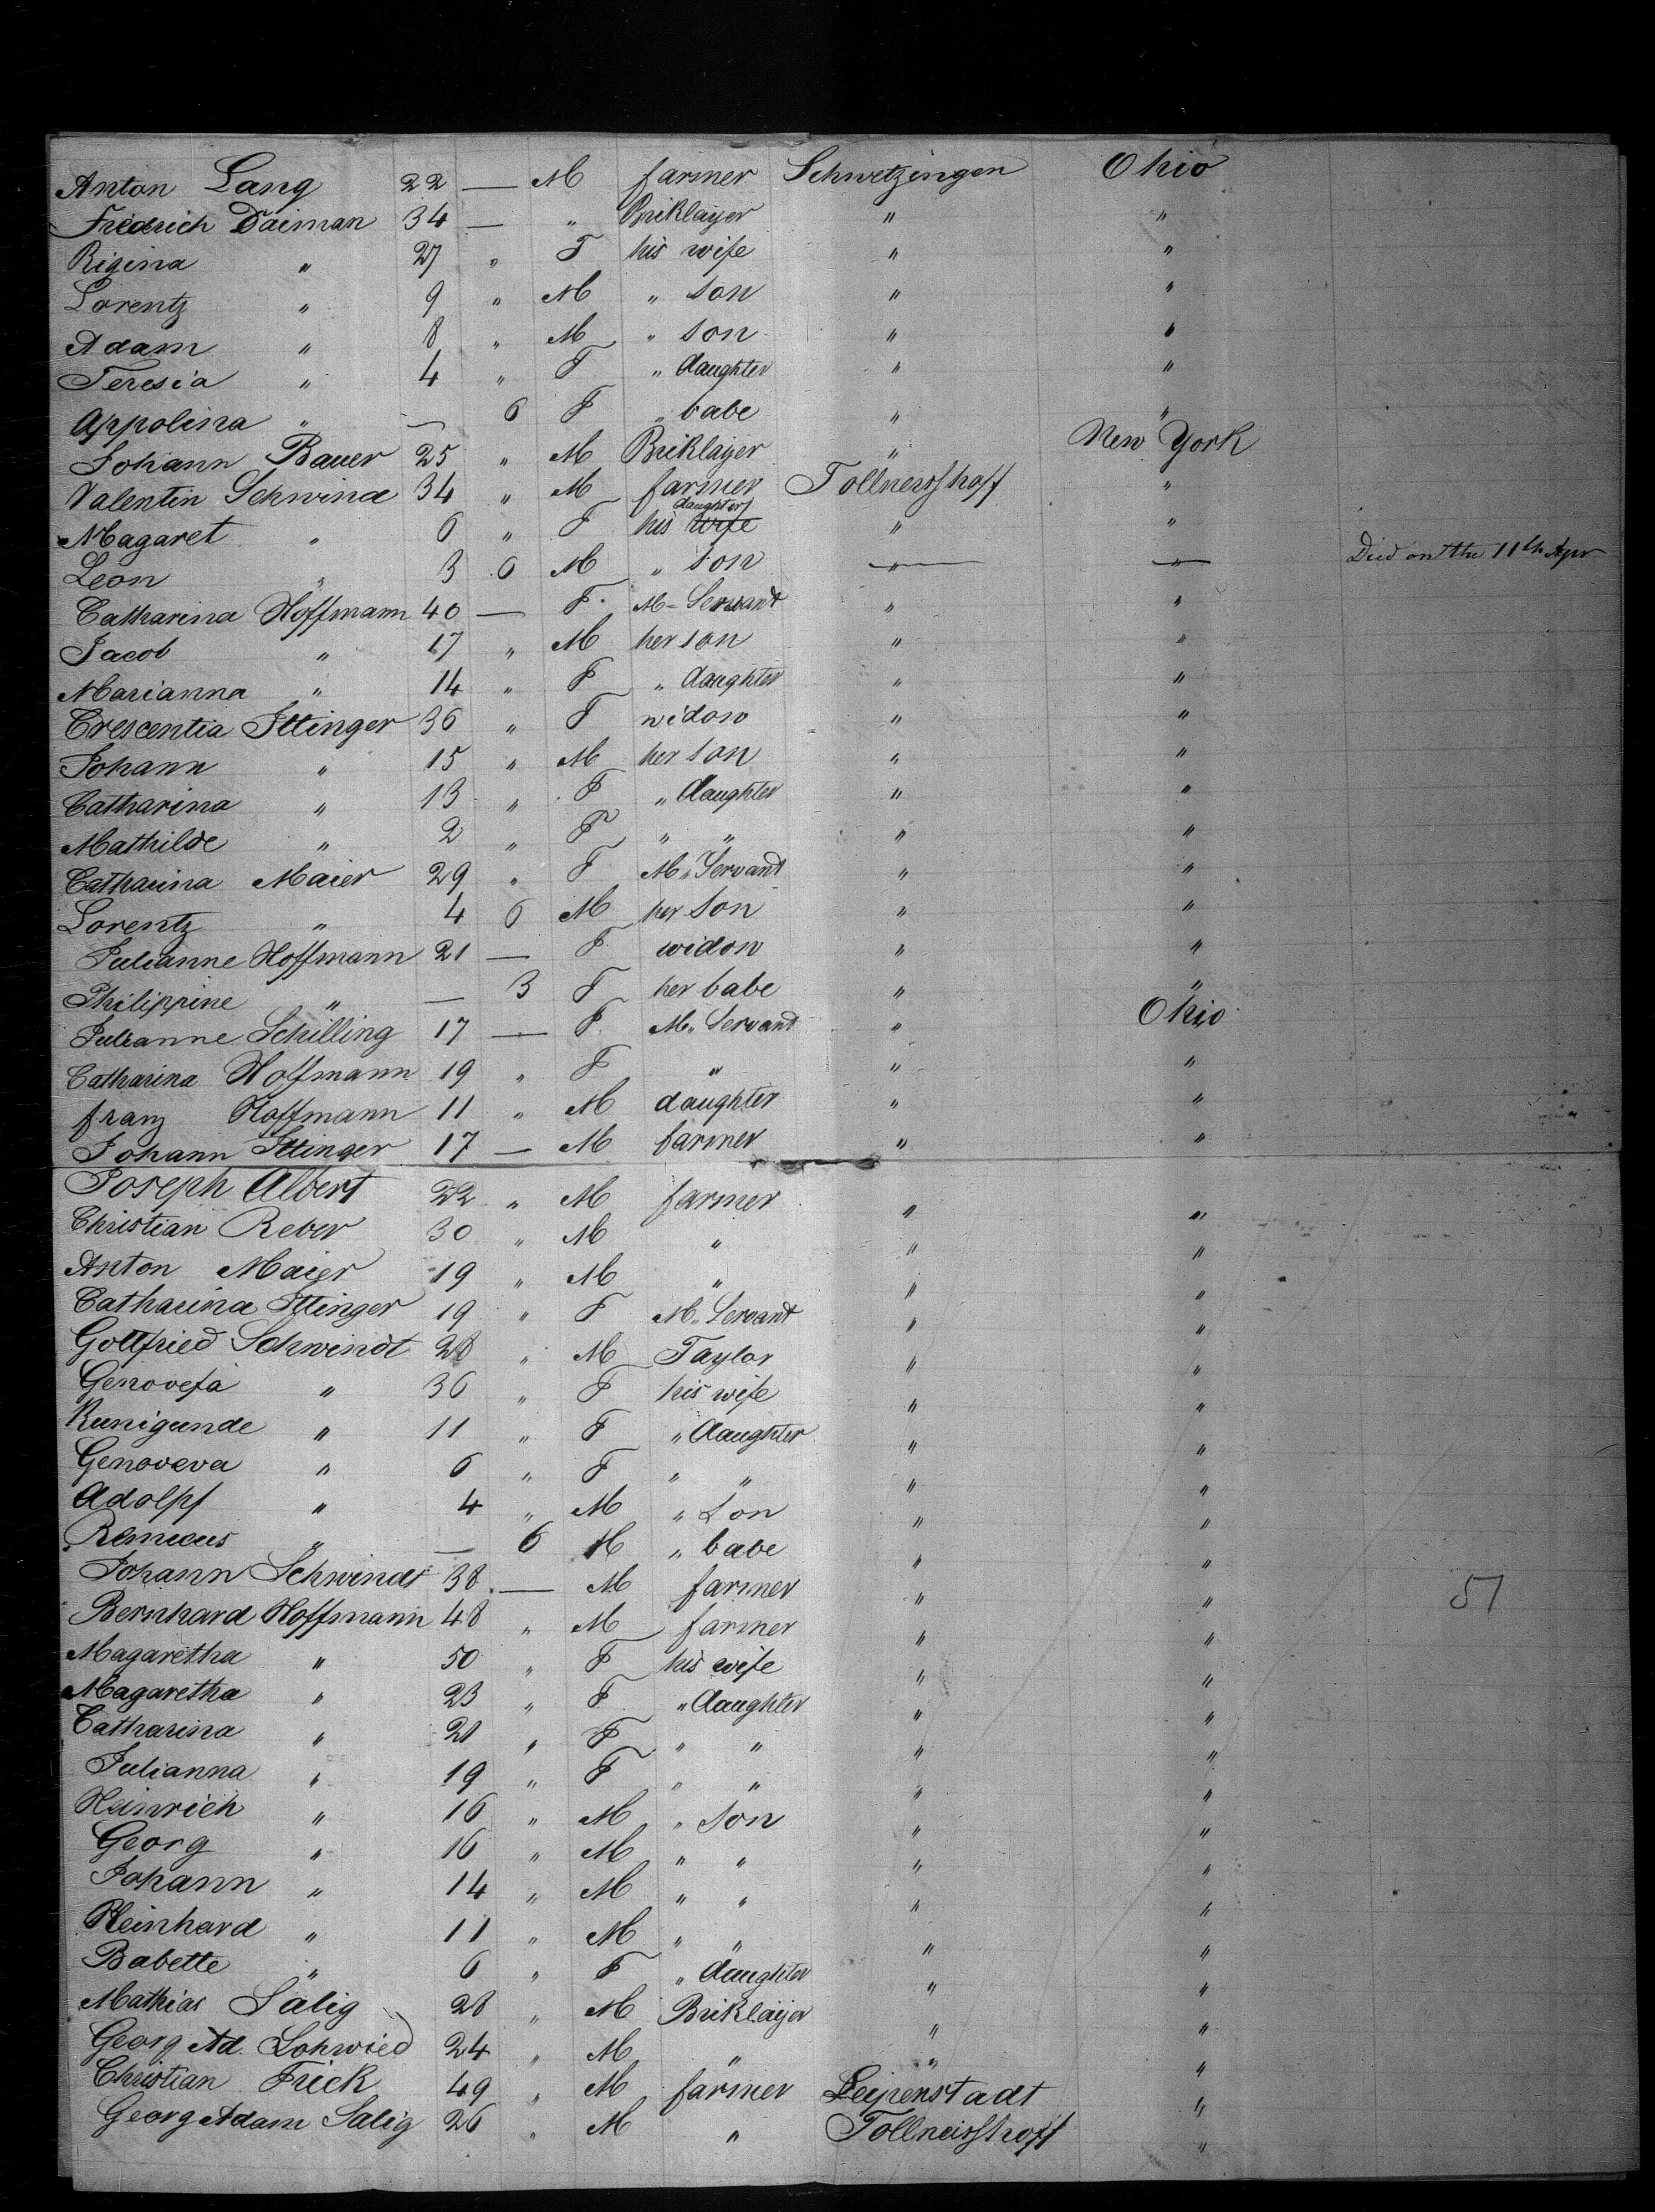 Anton Lang 22 — M farmer Schwetzingen Ohio
Fredrich Daiman 34 — " Briklayer " "
Rigina " 27 " F his wife " "
Lorentz " 9 " M " son " "
Adam " 8 " M " son " "
Teresia " 4 " F " daughter " "
Appolina " — 6 F " babe " "
Johann Bauer 25 " M Briklayer " New York
Valentin Schwind 34 " M farmer Tollnersshoff "
Magaret " 6 " F his wife daughter " "
Leon " 3 6 M " son " " Died on the 11th Apr
Catharina Hoffmann 40 — F M-Servant " "
Jacob " 17 " M her son " "
Marianna " 14 " F " daughter " "
Crescentia Ittinger 36 " F widow " "
Johann " 15 " M her son " "
Catharina " 13 " F " daughter " "
Mathilde " 2 " F " " " "
Catharina Maier 29 " F M" Servant " "
Lorentz " 4 6 M her son " "
Julianne Hoffmann 21 — F widow " "
Philippine " — 3 F her babe " "
Julianne Schilling 17 — F M" Servant " Ohio
Catharina Hoffmann 19 " F " " "
franz Hoffmann 11 " M daughter " "
Johann Ittinger 17 — M farmer " "
Joseph Albert 22 " M farmer " "
Christian Reber 30 " M " " "
Anton Maier 19 " M " " "
Catharina Ittinger 19 " F M" Servant " "
Gottfried Schwindt 28 " M Taylor " "
Genovefa " 36 " F his wife " "
Kunigunde " 11 " F " daughter " "
Genoveva " 6 " F " " " "
Adolpf " 4 " M " Son " "
" — 6 M " babe " "
Johann Schwindt 38 — M farmer " "
51
Bernhard Hoffmann 48 " M farmer " "
Magaretha " 50 " F his wife " "
Magaretha " 23 " F " daughter " "
Catharina " 21 " F " " " "
Julianna " 19 " F " " " "
Heinrich " 16 " M " son " "
Georg " 16 " M " " " "
Johann " 14 " M " " " "
Reinhard " 11 " M " " " "
Babette " 6 " F " daughter " "
Mathias Salig 28 " M Briklayer " "
Georg Ad. Lohwied 24 " M " " "
Christian Frick 49 " M farmer Leipenstadt "
Georg Adam Salig 26 " M " Tollneisshoff "